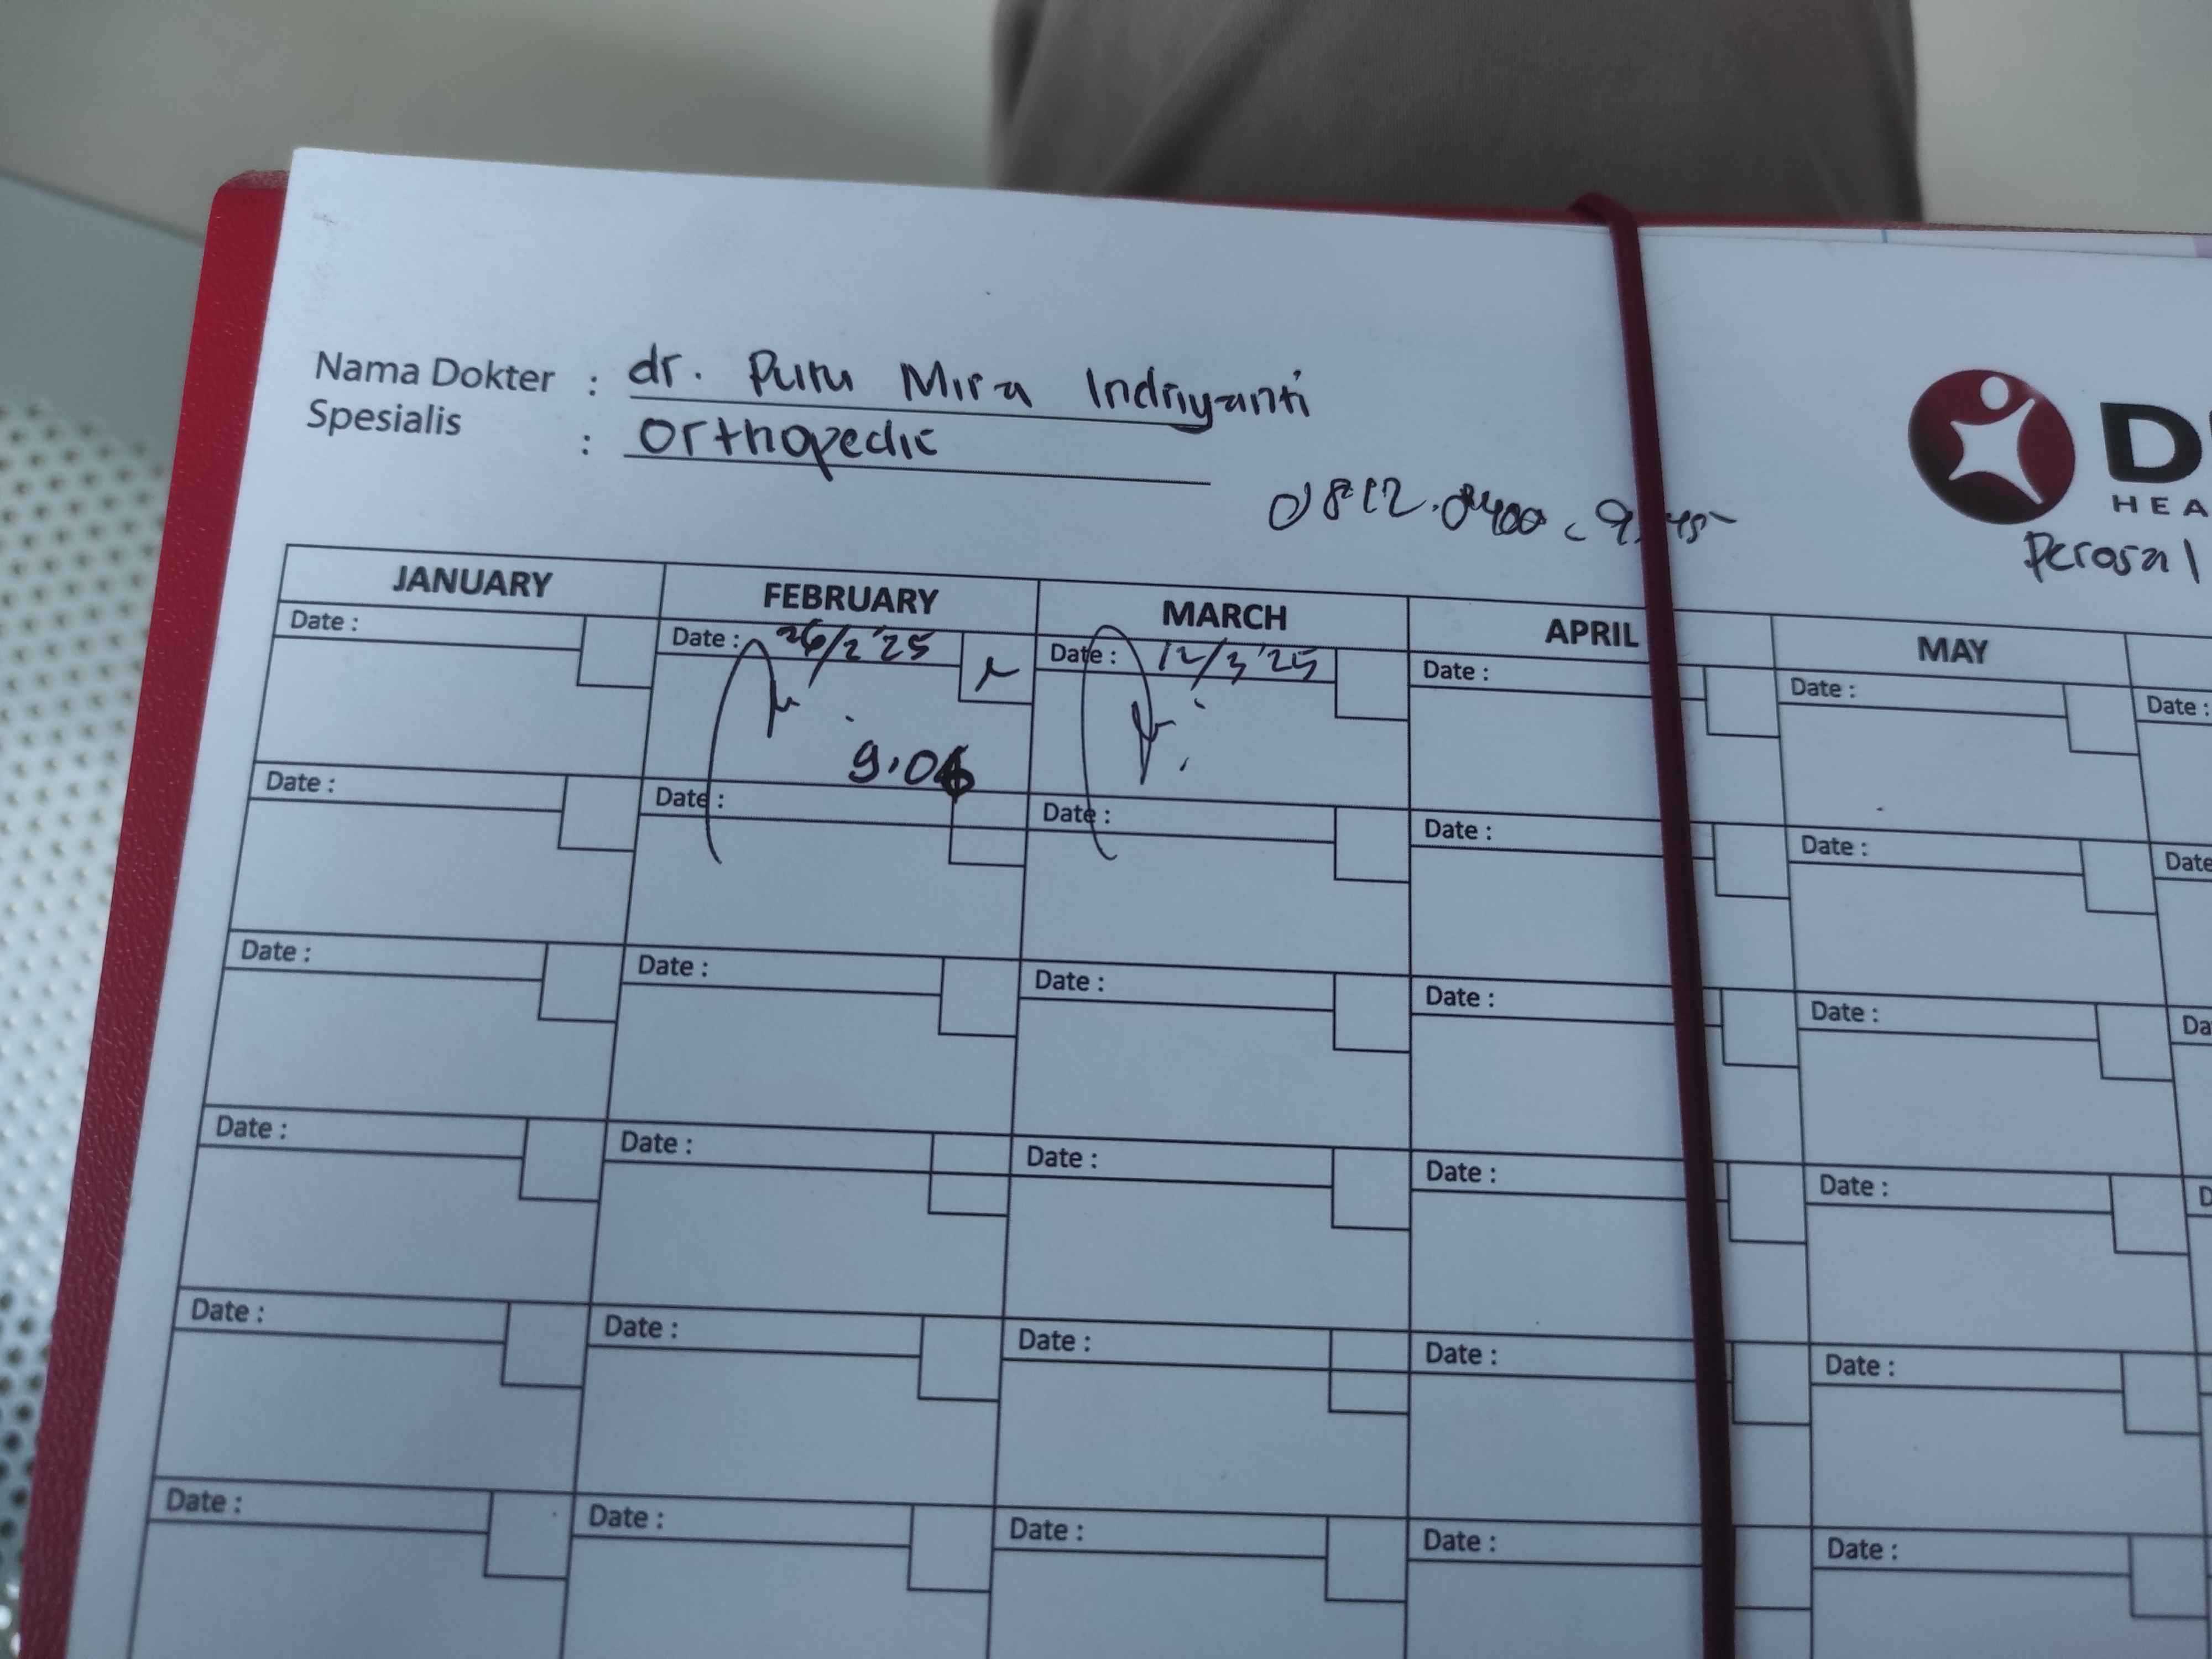 Nama Dokter : dr. Putu Mira Indriyanti
Spesialis : Orthopedic
0812.
D
HEA
Perosal
JANUARY FEBRUARY MARCH APRIL MAY
Date : Date : 26/2'25 Date : 12/3'25 Date : Date : Date :
9.06
Date : Date : Date : Date : Date : Date
Date : Date : Date : Date : Date : Da
Date : Date : Date : Date : Date : D
Date : Date : Date : Date : Date :
Date : Date : Date : Date : Date :